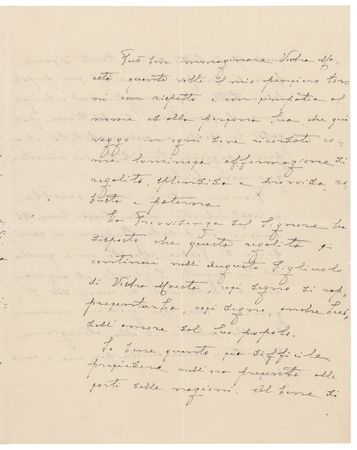 Può ben immaginare Vostra Mae-
stà quante volte il mio pensiero tor-
ni con rispetto e con simpatia al
nome e alla persona Sua, che qui
veggo in ogni dove ricordato co-
me luminosa affermazione di
regalità, splendida e provvida, ro-
busta e paterna.
La Provvidenza del Signore ha
disposto che questa regalità si
continui nell'augusto Figliuolo
di Vostra Maestà, così degno di rap-
presentarla, così degno, anche Lui,
dell'amore del Suo popolo.
So bene quanto sia difficile
nell'ora presente alle
porte delle nazioni. Al bene di